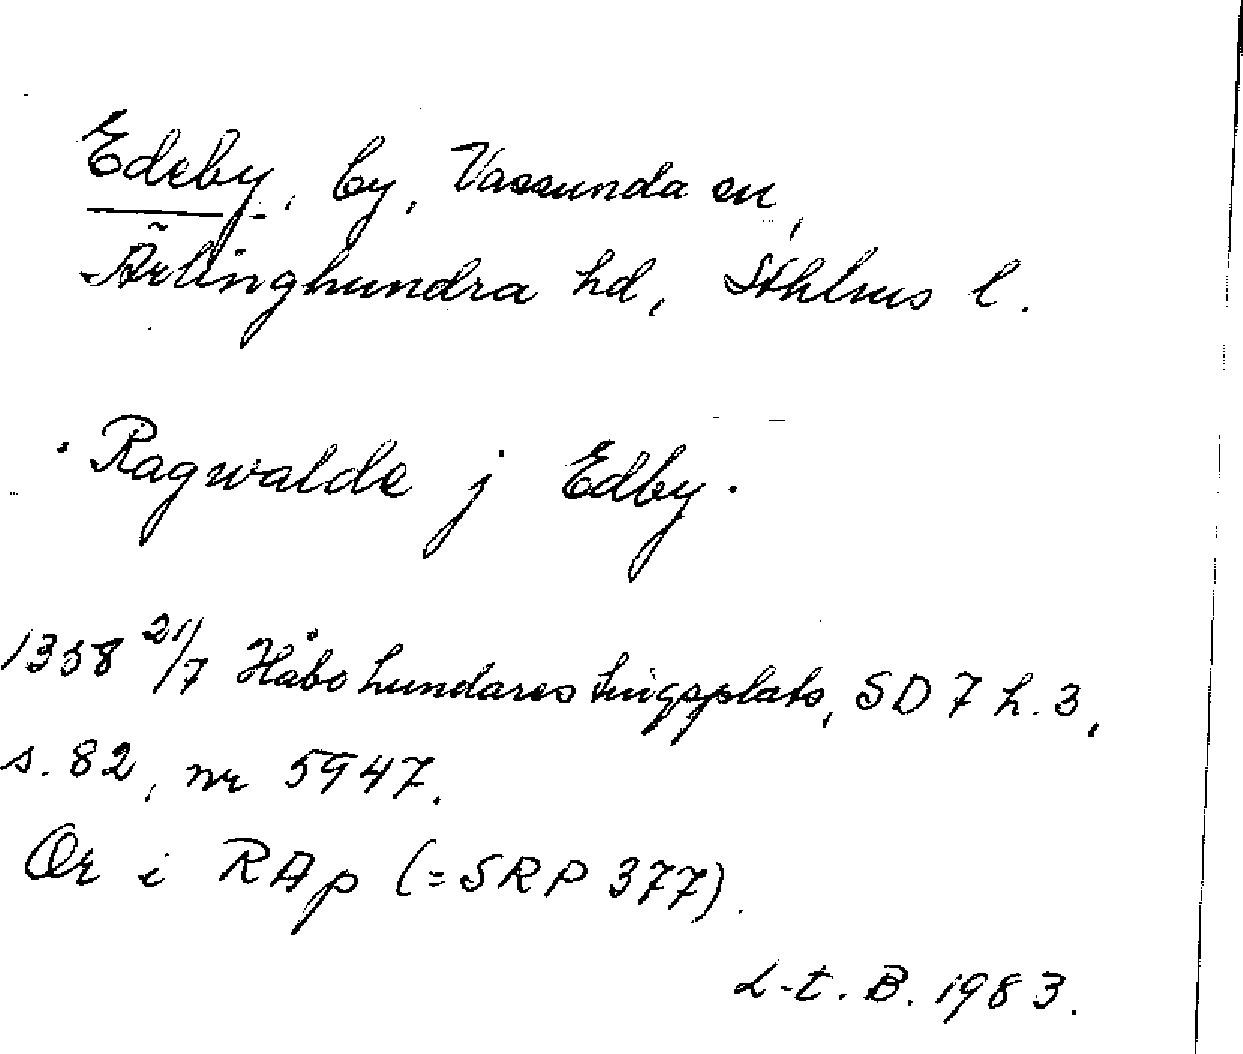 Edeby, by, Vassunda sn,
Ärlinghundra hd, Sthlms l.
Ragwalde j Edby.
1358 21/7 Håbo hundares tingsplats, SD 7 h. 3,
s. 82, nr 5947.
Or i RAp (=SRP 377).
L-t. B. 1983.